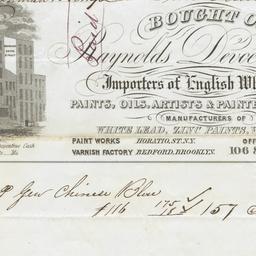 BOUGHT O
Paid
Raynolds Devoe
Importers of English Wh
PAINTS, OILS, ARTISTS & PAINTE
MANUFACTURERS OF
WHITE LEAD, ZINC PAINTS, V
PAINT WORKS HORATIO, ST. N.Y. OF
VARNISH FACTORY BEDFORD, BROOKLYN. 106 &
Chinese Blue
$116 175 157